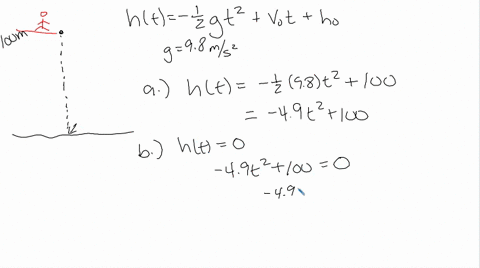 100m
h(t)=-½gt² + V₀t + h₀
g=9.8 m/s²
a.) h(t) = -½(9.8)t² + 100
= -4.9t² + 100
b.) h(t) = 0
-4.9t² + 100 = 0
-4.9